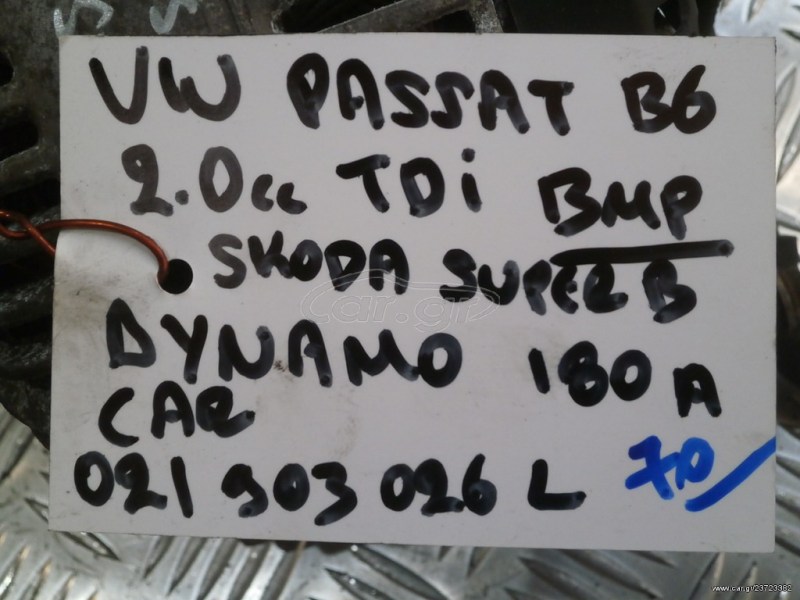 VW PASSAT B6
2.0cc TDi BMP
SKODA SUPER B
DYNAMO 180 A
CAR
021 903 026 L 70
Car.gr
www.car.gr/23723382